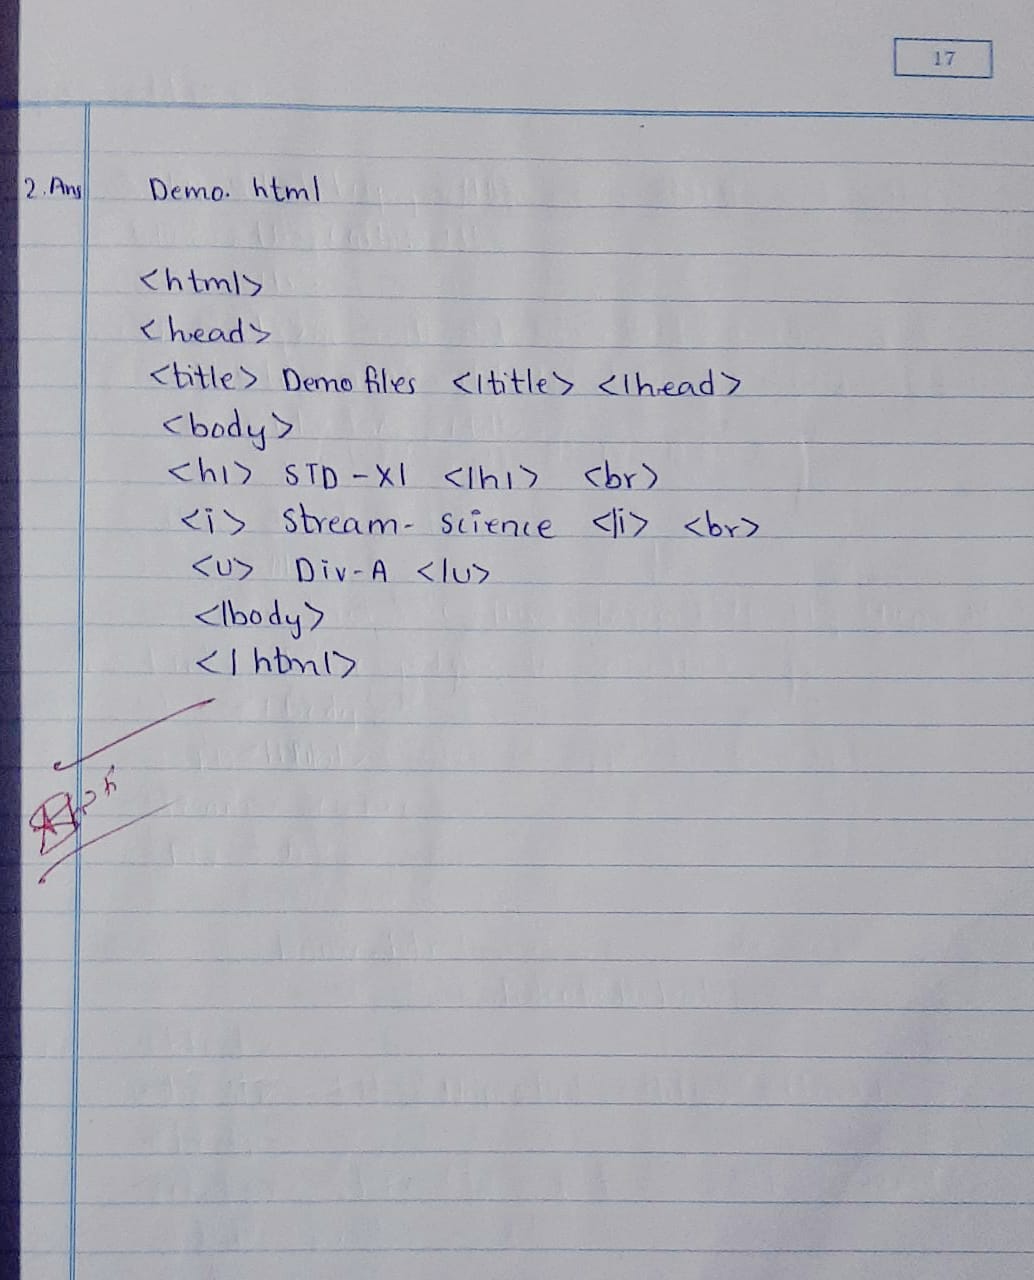 17
2. Ans Demo. html
<html>
<head>
<title> Demo files </title> </head>
<body>
<h1> STD - XI </h1> <br>
<i> Stream- Science </i> <br>
<u> Div-A </u>
</body>
</html>